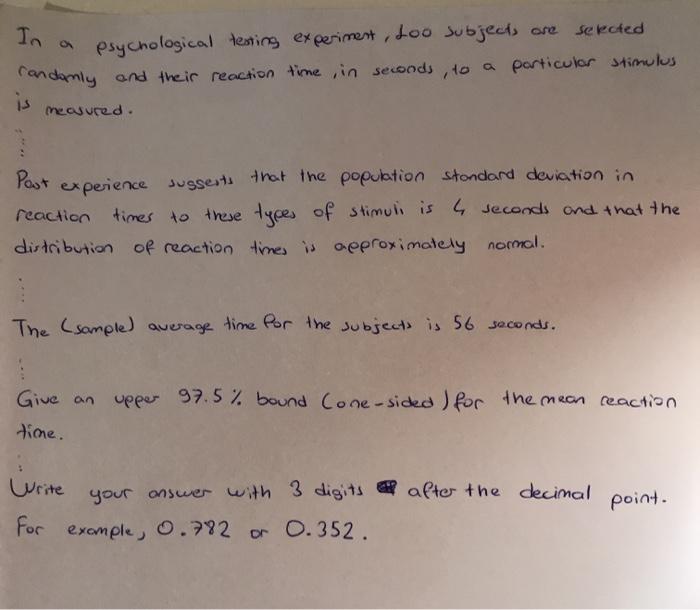 In a psychological testing experiment, 200 subjects are selected
randomly and their reaction time, in seconds, to a particular stimulus
is measured.
Past experience suggests that the population standard deviation in
reaction times to these types of stimuli is 4 seconds and that the
distribution of reaction times is approximately normal.
The (sample) average time for the subjects is 56 seconds.
Give an upper 97.5% bound (one-sided) for the mean reaction
time.
Write your answer with 3 digits after the decimal point.
For example, 0.782 or 0.352.